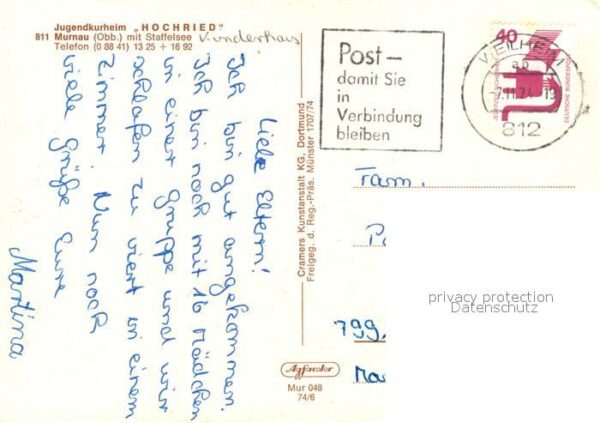 Jugendkurheim „HOCHRIED"
811 Murnau (Obb.) mit Staffelsee
Telefon (0 88 41) 13 25 + 16 92
Kinderhaus
Liebe Eltern!
Ich bin gut angekommen.
Ich bin noch mit 16 Mädchen
in einer Gruppe und wir
schlafen zu viert in einem
Zimmer. Nun noch
viele Grüße Eure
Martina
Cramers Kunstanstalt KG, Dortmund
Freigeg. d. Reg.-Präs. Münster 1707/74
Agfacolor
Mur 048
74/6
Post –
damit Sie
in
Verbindung
bleiben
WEILHEIM
812
40
DEUTSCHE BUNDESPOST
Fam.
799
privacy protection
Datenschutz